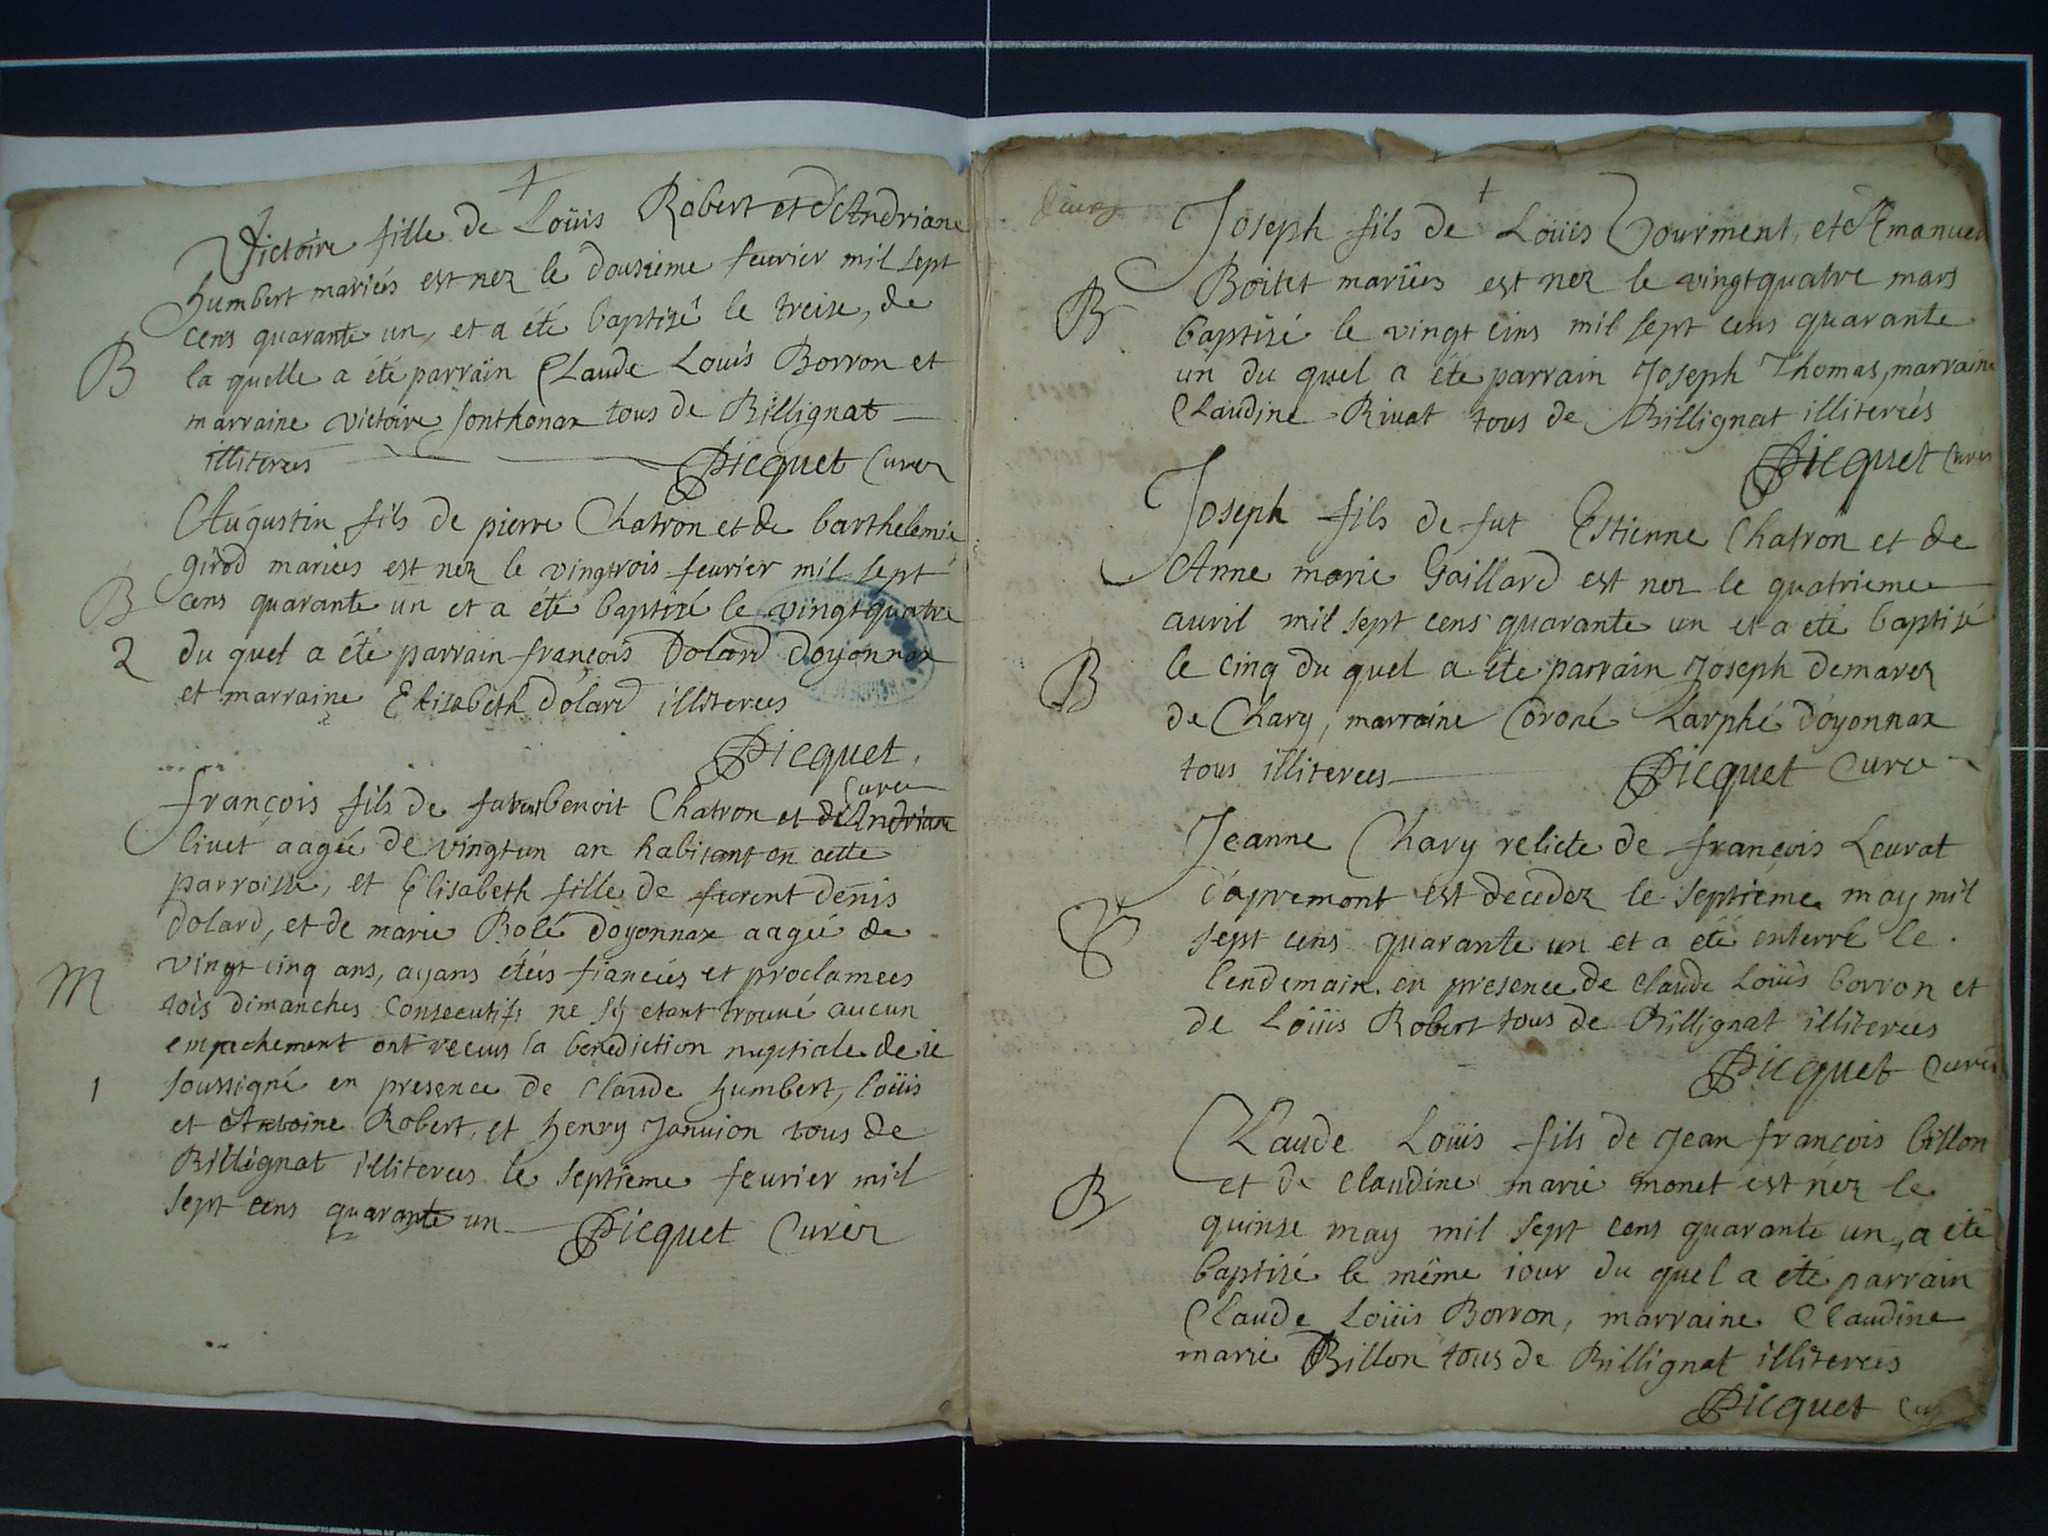 Victoire fille de Loüis Robert et d'Andriane
humbert mariés est nez le dousieme feurier mil sept
cens quarante un, et a été baptisé le treise, de
B la quelle a été parrain Claude Louis Borron et
marraine victoire sonthonax tous de Billignat
illiterees Picquet Curez
Augustin fils de pierre Chatron et de barthelemie
girod mariees est nez le vingtrois feurier mil sept
B cens quarante un et a été baptisé le vingtquatre
2 du quel a été parrain françois Dolard doyonnax
et marraine Elisabeth dolard illiterees
Picquet
Curez
françois fils de benoit Chatron et de Andriane
livet aagée de vingtun an habitant en cette
parroisse, et Elisabeth fille de denis
dolard, et de marie Bolé doyonnax aagée de
vingt cinq ans, ayans étéés fiancées et proclamees
M tois dimanches consecutifs ne sÿ etant trouvé aucun
empechement ont recus la benediction nuptiale de ie
1 soussigné en presence de claude humbert, loüis
et Antoine Robert, et henry Januion tous de
Billignat illiterees le septieme feurier mil
sept cens quarante un Picquet Curez
Joseph fils de Loüis Dourment, et Emanuel
B Boitet mariées est nez le vingtquatre mars
baptisé le vingt cins mil sept cens quarante
un du quel a été parrain Joseph Thomas, marraine
Claudine Rivat tous de Billignat illiterées
Picquet Curez
Joseph fils de fut Estienne Chatron et de
Anne marie Gaillard est nez le quatrieme
auril mil sept cens quarante un et a été baptisé
B le cinq du quel a été parrain Joseph demarez
de Chary, marraine Larphé doyonnax
tous illiterees Picquet Curez
Jeanne Chary relicte de françois Leurat
d'apremont est decedez le septieme may mil
sept cens quarante un et a été enterré le
lendemain en presence de claude Loüis borron et
de Loüis Robert tous de Billignat illiterees
Picquet Curez
Claude Loüis fils de Jean françois billon
B et de claudine marie monet est néz le
quinse may mil sept cens quarante un, a été
baptisé le même iour du quel a été parrain
Claude Loüis Borron, marraine Claudine
marie Billon tous de Billignat illiterees
Picquet